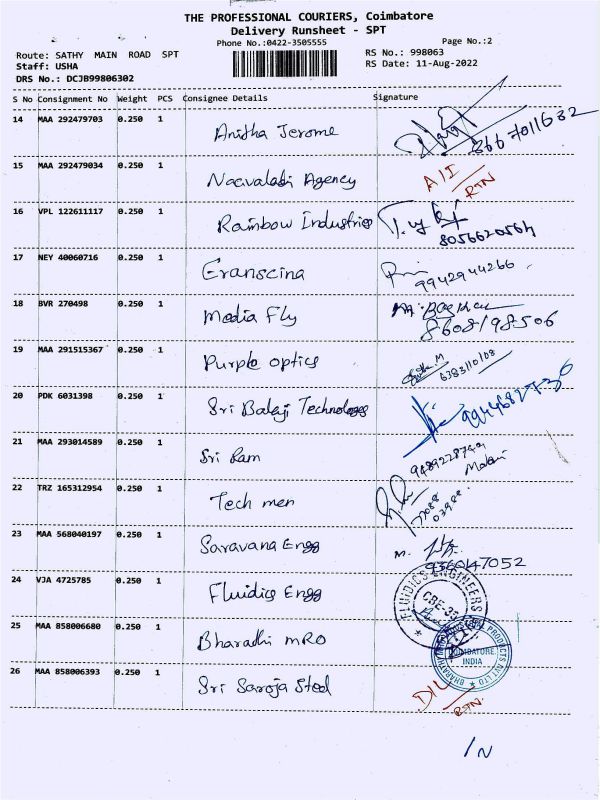 THE PROFESSIONAL COURIERS, Coimbatore
Delivery Runsheet - SPT
Phone No.:0422-3505555 Page No.:2
Route: SATHY MAIN ROAD SPT RS No.: 998063
Staff: USHA RS Date: 11-Aug-2022
DRS No.: DCJB99806302
S No Consignment No Weight PCS Consignee Details Signature
14 MAA 292479703 0.250 1 Anitha Jerome
15 MAA 292479034 0.250 1 Agency A/I RTN
16 VPL 122611117 0.250 1 Rainbow Industries 8056620564
17 NEY 40060716 0.250 1 Eranscina 9942944266
18 BVR 270498 0.250 1 Media Fly 8608198506
19 MAA 291515367 0.250 1 Purple optics 6383110108
20 PDK 6031398 0.250 1 Sri Balaji Technologes
21 MAA 293014589 0.250 1 Sri Ram
22 TRZ 165312954 0.250 1 Tech men
23 MAA 568040197 0.250 1 Saravana Engg
24 VJA 4725785 0.250 1 Fluidics Engg FLUIDICS ENGINEERS CBE-35
25 MAA 858006680 0.250 1 Bharathi MRO COIMBATORE INDIA PRODUCTS PVT LTD
26 MAA 858006393 0.250 1 Sri Saroja Steel D/L RTN